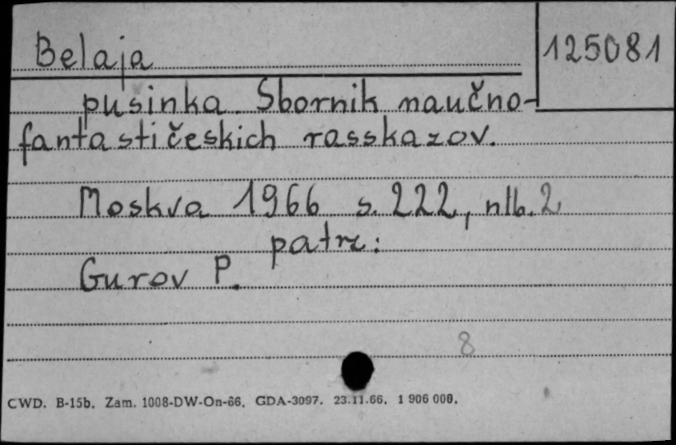 Belaja
125081
pusinka. Sbornik naučno-
fantastičeskich rasskazov.
Moskva 1966 s. 222, nlb. 2
patrz:
Gurov P.
8
CWD. B-15b. Zam. 1008-DW-On-66. GDA-3097. 23.11.66. 1 906 000.